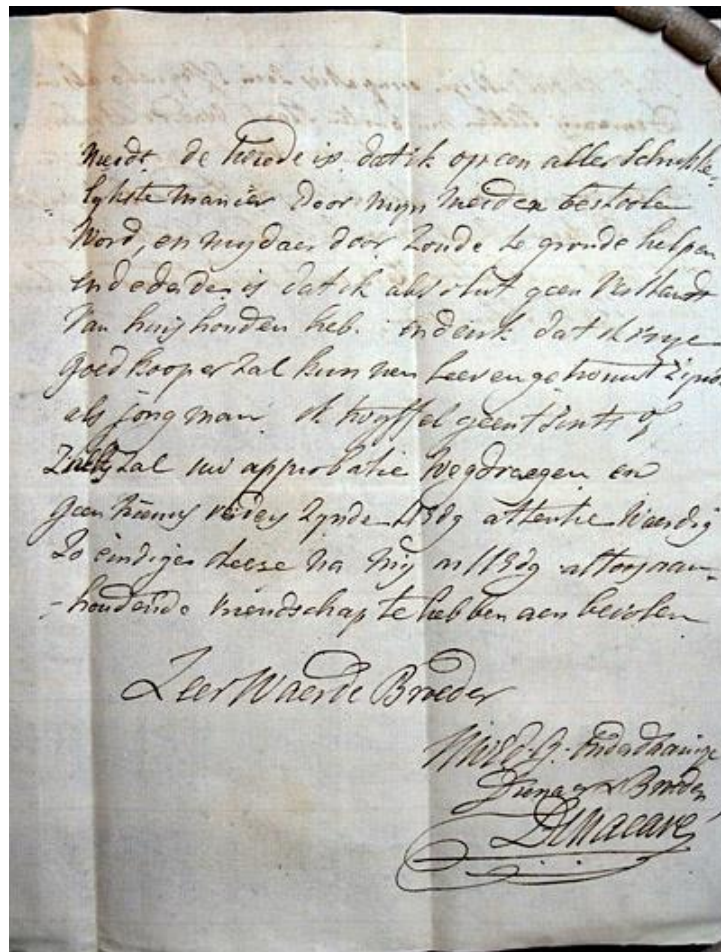 de tweede is dat ik op een aller schrikke-
lykste manier door mijn meiden bestoolen
word, en mij daer door zoude te gronde helpen
en de derde is dat ik absolut geen verstandt
van huijshouden heb. en denk dat
goedkooper zal kunnen leeven getrouwt zijnde
als jong man. ik twyffel geentsints of
zal uw approbatie wegdraegen en
geen nieuws verders zynde UEdg attentie waerdig
zo eindige deese na mij in UEdg altoos aan-
-houdende vriendschap te hebben aen bevolen
Zeer Waerde Broeder
UWEd. G. Onderdaanige
Dienaer & Broeder